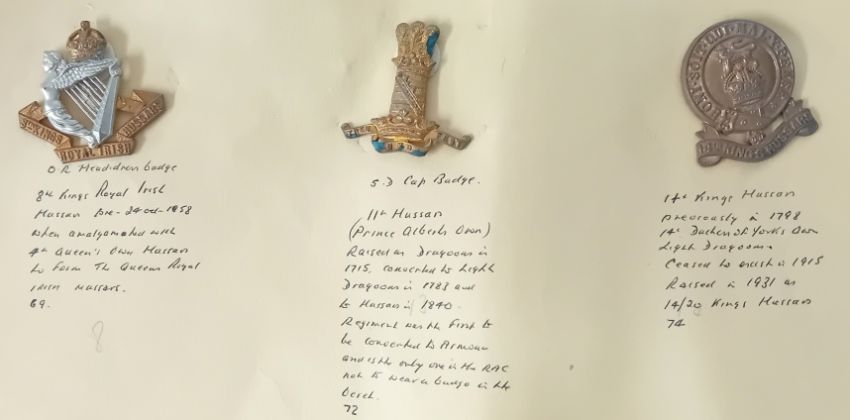 8TH KINGS
ROYAL IRISH
HUSSARS
O.R Headdress badge
8th Kings Royal Irish
Hussars Pre-24 oct-1958
when amalgamated with
4th Queen's Own Hussars
to form The Queens Royal
Irish Hussars.
69.
8
S.D Cap Badge.
11th Hussars
(Prince Alberts Own)
Raised as Dragoons in
1715. converted to Light
Dragoons in 1783 and
to Hussars in 1840.
Regiment was the first to
be converted to Armour
and is the only one in the RAC
not to wear a badge in the
beret.
72
HONI SOIT QUI MAL Y PENSE
14TH KING'S HUSSARS
14th Kings Hussars
previously in 1798
14th Duchess of Yorks Own
Light Dragoons
Ceased to exist in 1915
Raised in 1931 as
14/20 Kings Hussars
74